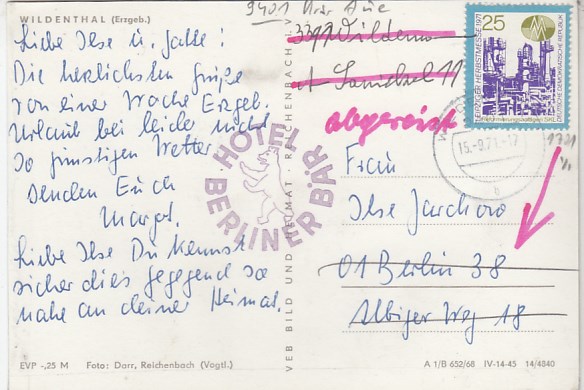 WILDENTHAL (Erzgeb.)
Liebe Ilse u. Gatte!
Die herzlichsten Grüße
von einer Woche Erzgeb.
Urlaub bei leider nicht
so günstigen Wetter
senden Euch
Margot.
Liebe Ilse Du kennst
sicher dies gegegend so
nahe an deiner Heimat.
EVP -,25 M Foto: Darr, Reichenbach (Vogtl.)
VEB BILD UND HEIMAT · REICHENBACH I. V.
HOTEL
BERLINER BÄR
9401 Aue
abgereist
25
LEIPZIGER HERBSTMESSE 1971
DEUTSCHE DEMOKRATISCHE REPUBLIK
15.-9.71.-17
b
1721
Frau
Ilse Jarchow
01 Berlin 38
Albiger Weg 18
A 1/B 652/68 IV-14-45 14/4840